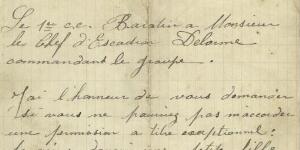 Le 1er c.c. Baratin a Monsieur
le Chef d'Escadron Delorme
commandant le groupe.
J'ai l'honneur de vous demander
si vous ne pourriez pas m'accorder
une permission a titre exceptionnel.
petite fille